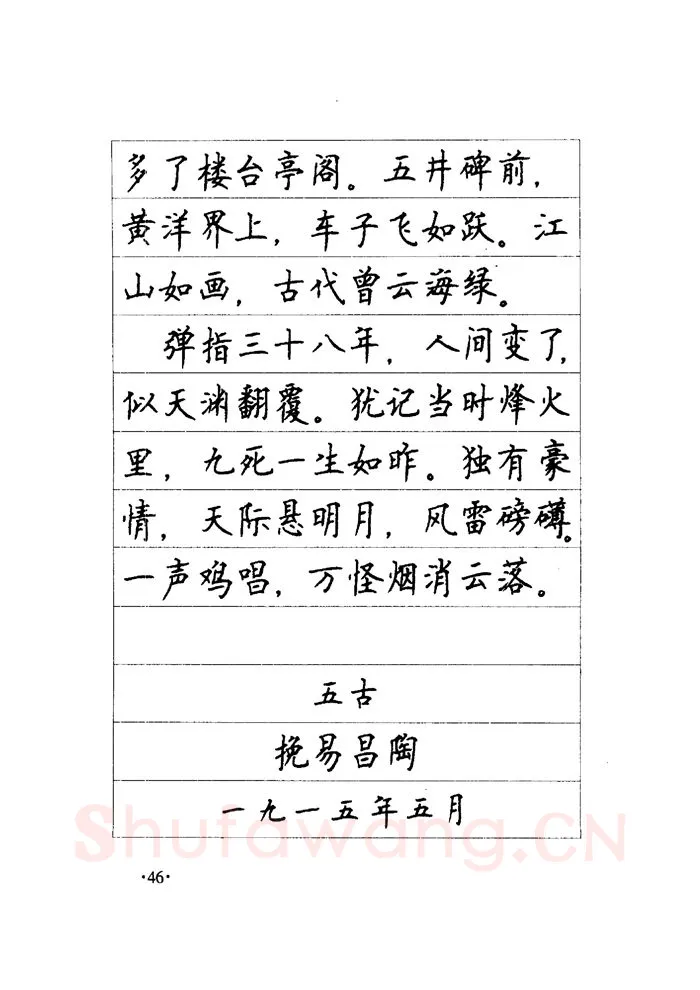 多了楼台亭阁。五井碑前，
黄洋界上，车子飞如跃。江
山如画，古代曾云海绿。
弹指三十八年，人间变了，
似天渊翻覆。犹记当时烽火
里，九死一生如昨。独有豪
情，天际悬明月，风雷磅礴。
一声鸡唱，万怪烟消云落。
五古
挽易昌陶
一九一五年五月
Shufawang.CN
·46·